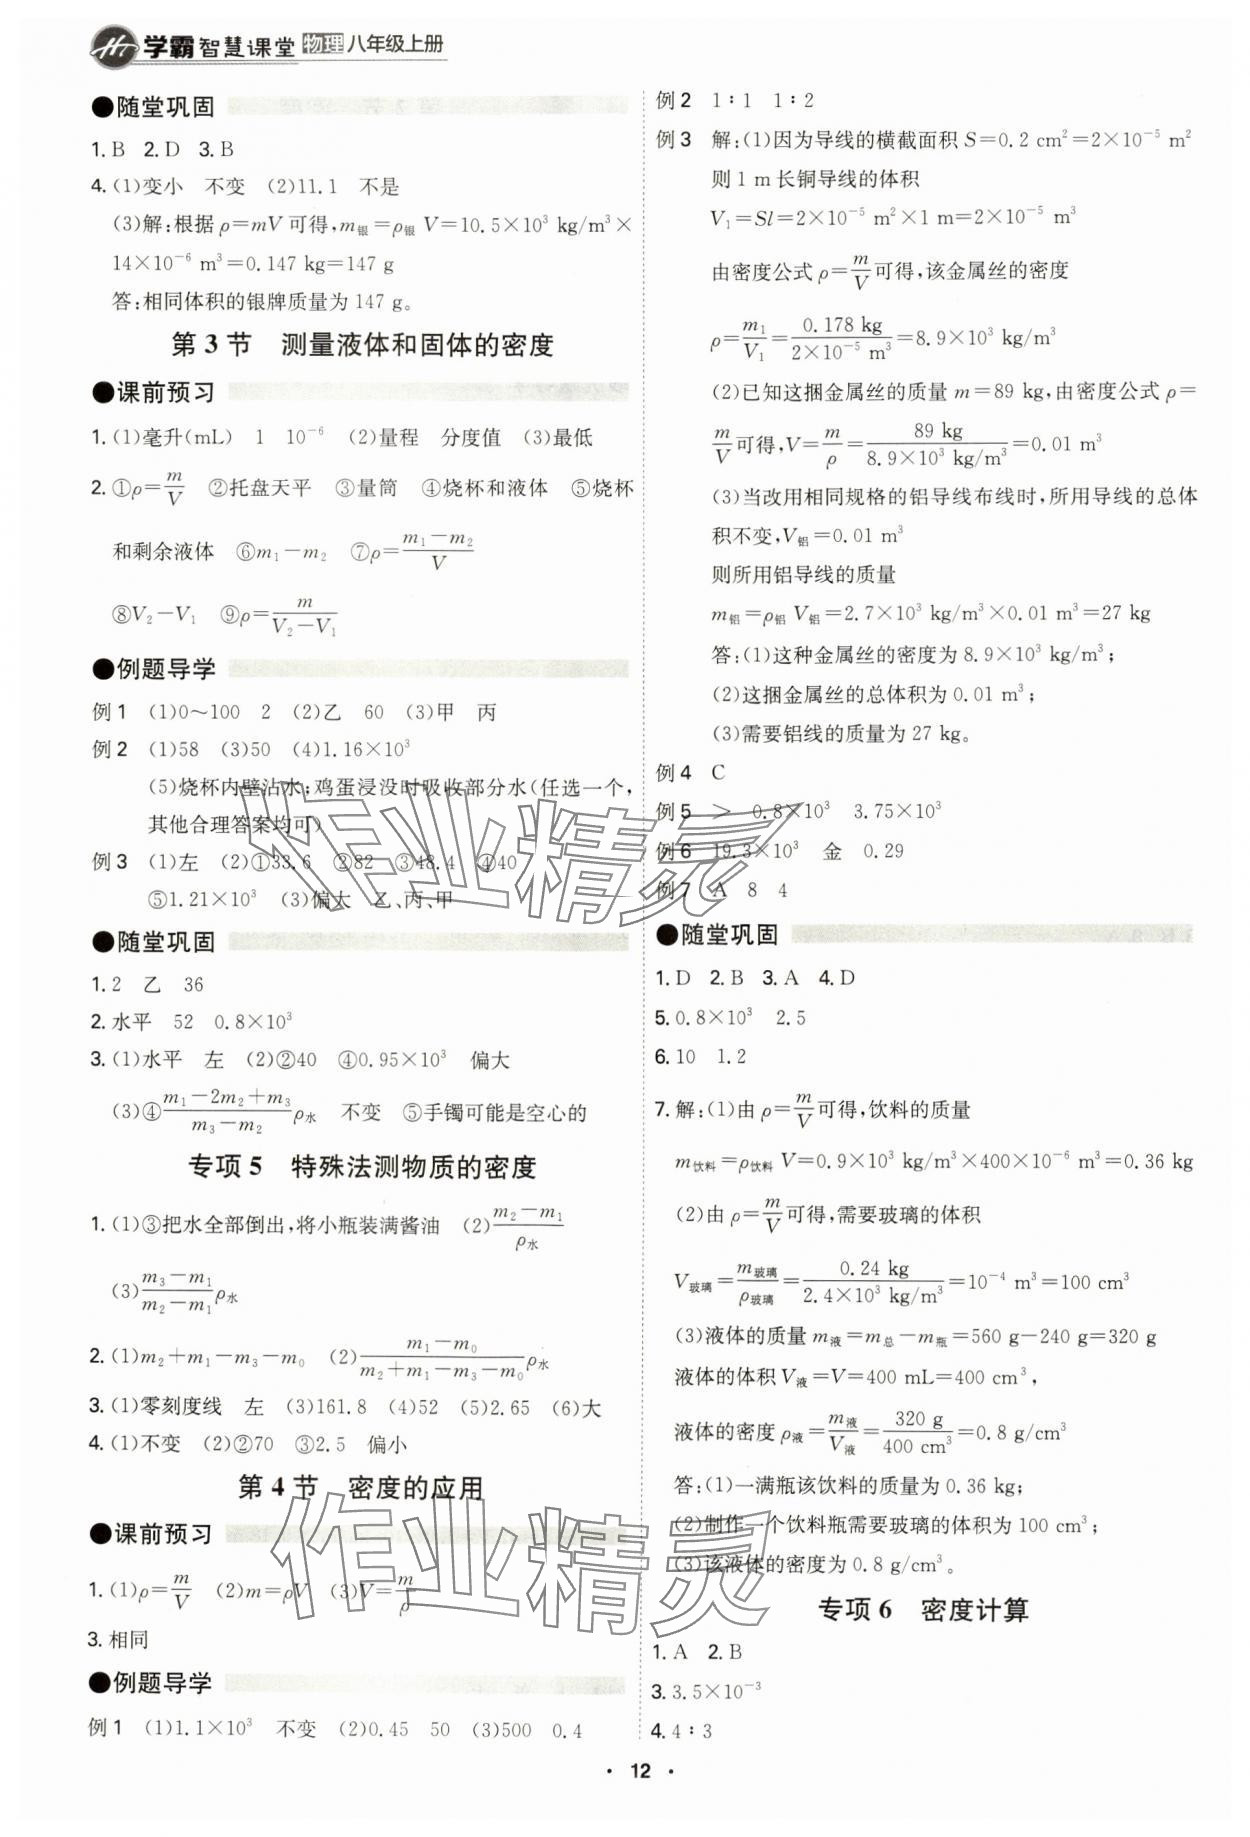 学霸智慧课堂 物理 八年级上册
●随堂巩固
1. B  2. D  3. B
4. (1)变小  不变  (2)11.1  不是
(3)解:根据 ρ=mV 可得,m银=ρ银 V=10.5×10³ kg/m³×
14×10⁻⁶ m³=0.147 kg=147 g
答:相同体积的银牌质量为 147 g。
第 3 节  测量液体和固体的密度
●课前预习
1. (1)毫升(mL)  1  10⁻⁶  (2)量程  分度值  (3)最低
2. ①ρ=m/V  ②托盘天平  ③量筒  ④烧杯和液体  ⑤烧杯
和剩余液体  ⑥m₁-m₂  ⑦ρ=(m₁-m₂)/V
⑧V₂-V₁  ⑨ρ=m/(V₂-V₁)
●例题导学
例 1  (1)0～100  2  (2)乙  60  (3)甲  丙
例 2  (1)58  (3)50  (4)1.16×10³
(5)烧杯内壁沾水;鸡蛋浸没时吸收部分水(任选一个,
其他合理答案均可)
例 3  (1)左  (2)①33.6  ②82  ③48.4  ④40
⑤1.21×10³  (3)偏大  乙、丙、甲
●随堂巩固
1. 2  乙  36
2. 水平  52  0.8×10³
3. (1)水平  左  (2)②40  ④0.95×10³  偏大
(3)④(m₁-2m₂+m₃)/(m₃-m₂)ρ水  不变  ⑤手镯可能是空心的
专项 5  特殊法测物质的密度
1. (1)③把水全部倒出,将小瓶装满酱油  (2)(m₂-m₁)/ρ水
(3)(m₃-m₁)/(m₂-m₁)ρ水
2. (1)m₂+m₁-m₃-m₀  (2)(m₁-m₀)/(m₂+m₁-m₃-m₀)ρ水
3. (1)零刻度线  左  (3)161.8  (4)52  (5)2.65  (6)大
4. (1)不变  (2)②70  ③2.5  偏小
第 4 节  密度的应用
●课前预习
1. (1)ρ=m/V  (2)m=ρV  (3)V=m/ρ
3. 相同
●例题导学
例 1  (1)1.1×10³  不变  (2)0.45  50  (3)500  0.4
例 2  1∶1  1∶2
例 3  解:(1)因为导线的横截面积 S=0.2 cm²=2×10⁻⁵ m²
则 1 m 长铜导线的体积
V₁=Sl=2×10⁻⁵ m²×1 m=2×10⁻⁵ m³
由密度公式 ρ=m/V可得,该金属丝的密度
ρ=m₁/V₁=0.178 kg/(2×10⁻⁵ m³)=8.9×10³ kg/m³
(2)已知这捆金属丝的质量 m=89 kg,由密度公式 ρ=
m/V可得,V=m/ρ=89 kg/(8.9×10³ kg/m³)=0.01 m³
(3)当改用相同规格的铝导线布线时,所用导线的总体
积不变,V铝=0.01 m³
则所用铝导线的质量
m铝=ρ铝 V铝=2.7×10³ kg/m³×0.01 m³=27 kg
答:(1)这种金属丝的密度为 8.9×10³ kg/m³;
(2)这捆金属丝的总体积为 0.01 m³;
(3)需要铝线的质量为 27 kg。
例 4  C
例 5  >  0.8×10³  3.75×10³
例 6  19.3×10³  金  0.29
例 7  A  8  4
●随堂巩固
1. D  2. B  3. A  4. D
5. 0.8×10³  2.5
6. 10  1.2
7. 解:(1)由 ρ=m/V可得,饮料的质量
m饮料=ρ饮料 V=0.9×10³ kg/m³×400×10⁻⁶ m³=0.36 kg
(2)由 ρ=m/V可得,需要玻璃的体积
V玻璃=m玻璃/ρ玻璃=0.24 kg/(2.4×10³ kg/m³)=10⁻⁴ m³=100 cm³
(3)液体的质量 m液=m总-m瓶=560 g-240 g=320 g
液体的体积 V液=V=400 mL=400 cm³,
液体的密度 ρ液=m液/V液=320 g/400 cm³=0.8 g/cm³
答:(1)一满瓶该饮料的质量为 0.36 kg;
(2)制作一个饮料瓶需要玻璃的体积为 100 cm³;
(3)该液体的密度为 0.8 g/cm³。
专项 6  密度计算
1. A  2. B
3. 3.5×10⁻³
4. 4∶3
· 12 ·
作业精灵
作业精灵